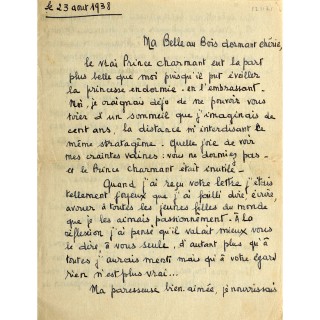 le 23 aout 1938
Ma Belle au Bois dormant chérie,
Le vrai Prince charmant eut la part
plus belle que moi puisqu'il put éveiller
la princesse endormie - en l'embrassant.
Moi, je craignais déjà de ne pouvoir vous
tirer d'un sommeil que j'imaginais de
cent ans, la distance m'interdisant le
même stratagème. Quelle joie de voir
mes craintes vaines : vous ne dormiez pas -
et le Prince charmant était inutile -
Quand j'ai reçu votre lettre j'étais
tellement joyeux que j'ai failli dire, écrire,
avouer à toutes les jeunes filles du monde
que je les aimais passionnément. À la
réflexion j'ai pensé qu'il valait mieux vous
le dire, à vous seule, d'autant plus qu'à
toutes j'aurais menti mais qu'à votre égard
rien n'est plus vrai...
Ma paresseuse bien aimée, je nourrissais